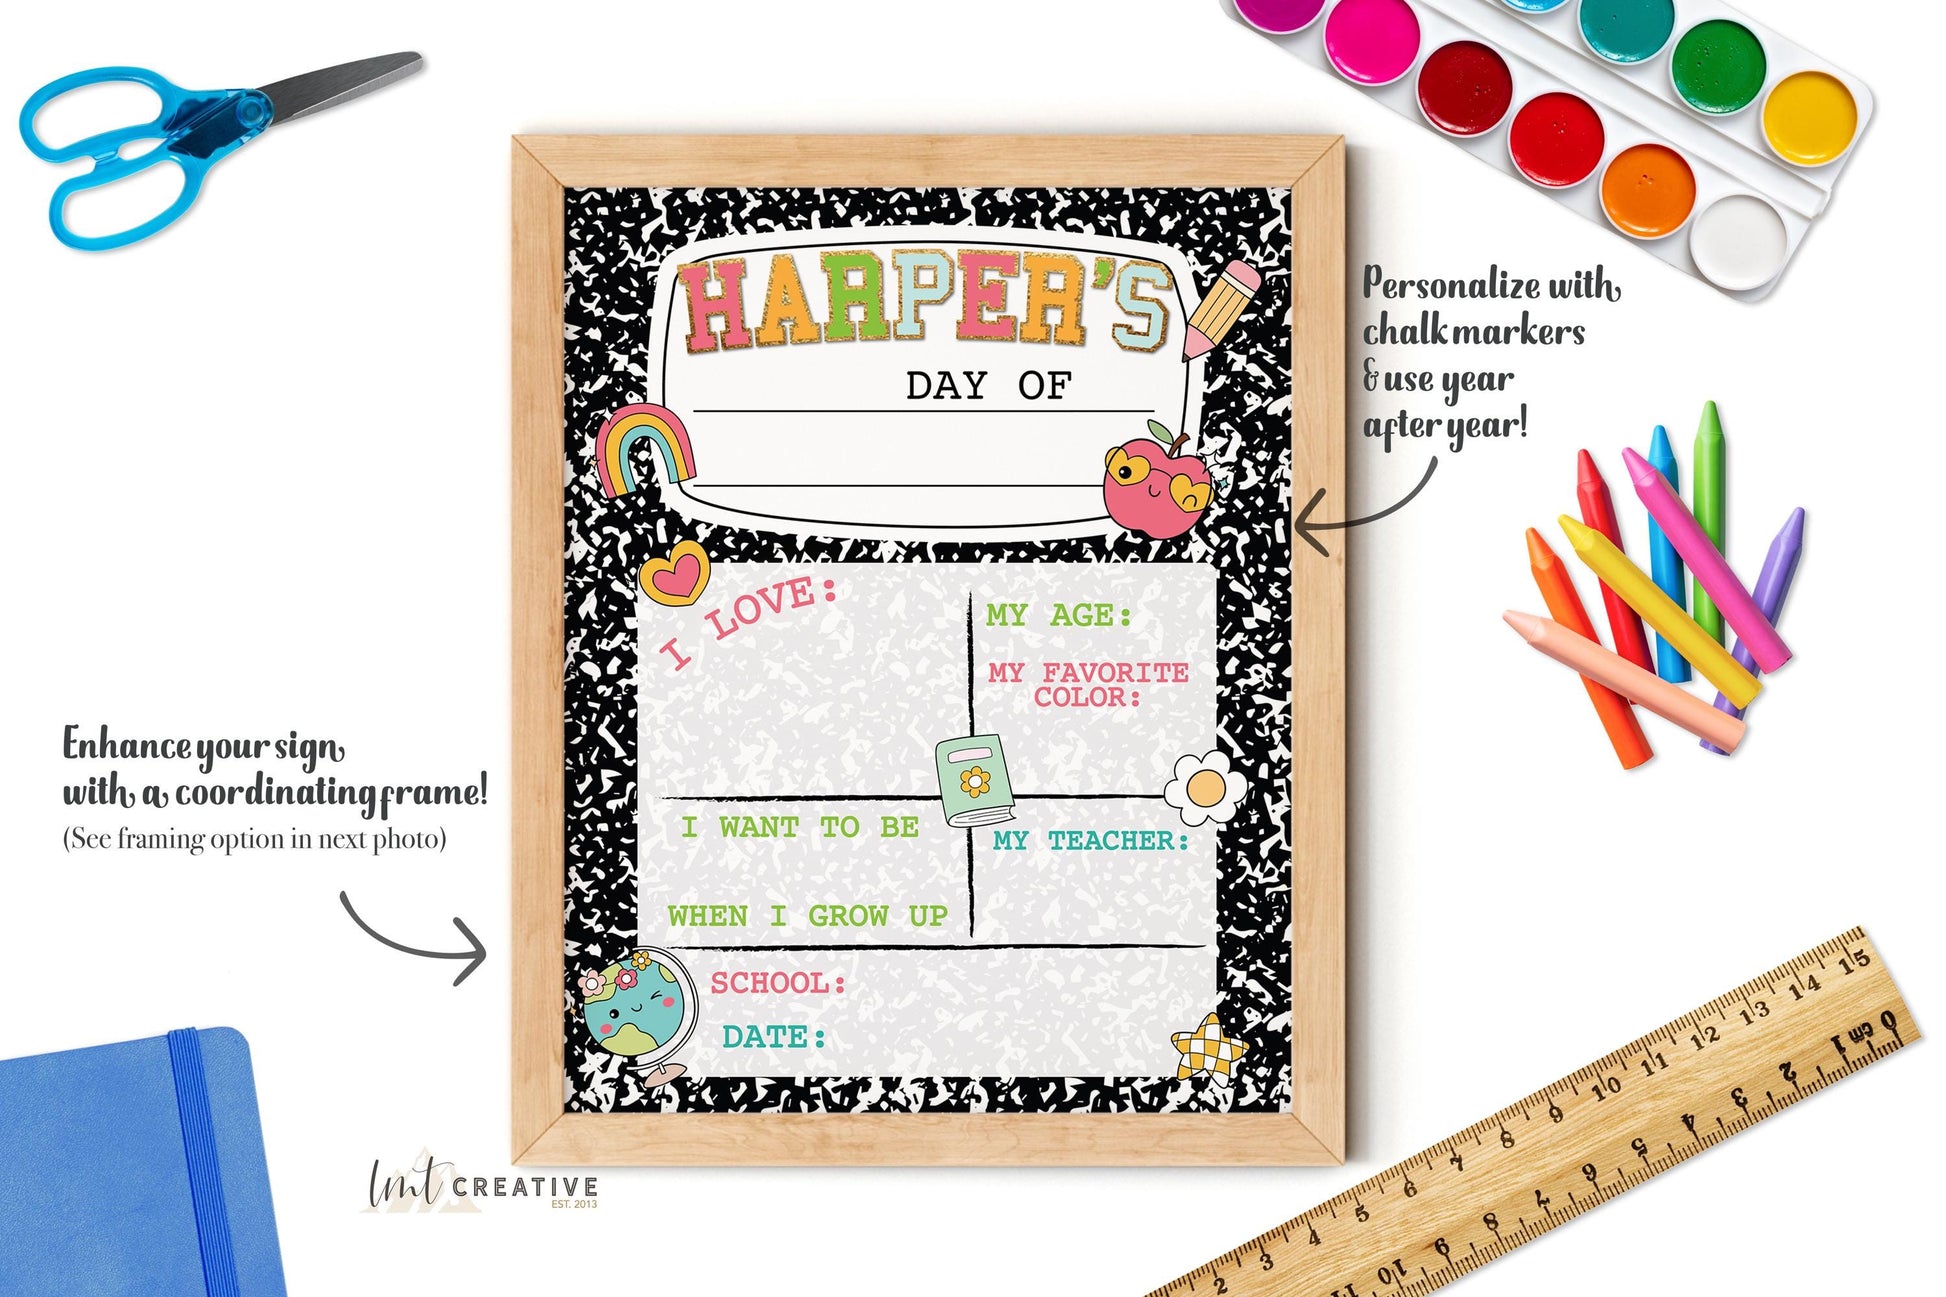 HARPER'S
DAY OF
I LOVE:
MY AGE:
MY FAVORITE
COLOR:
I WANT TO BE
WHEN I GROW UP
MY TEACHER:
SCHOOL:
DATE:
Personalize with
chalk markers
& use year
after year!
Enhance your sign
with a coordinating frame!
(See framing option in next photo)
lmt CREATIVE
EST. 2013
2 3 4 5 6 7 8 9 10 11 12 13 14 15
0 1 2 3 4 5 6 7 8 9 10 11
cm